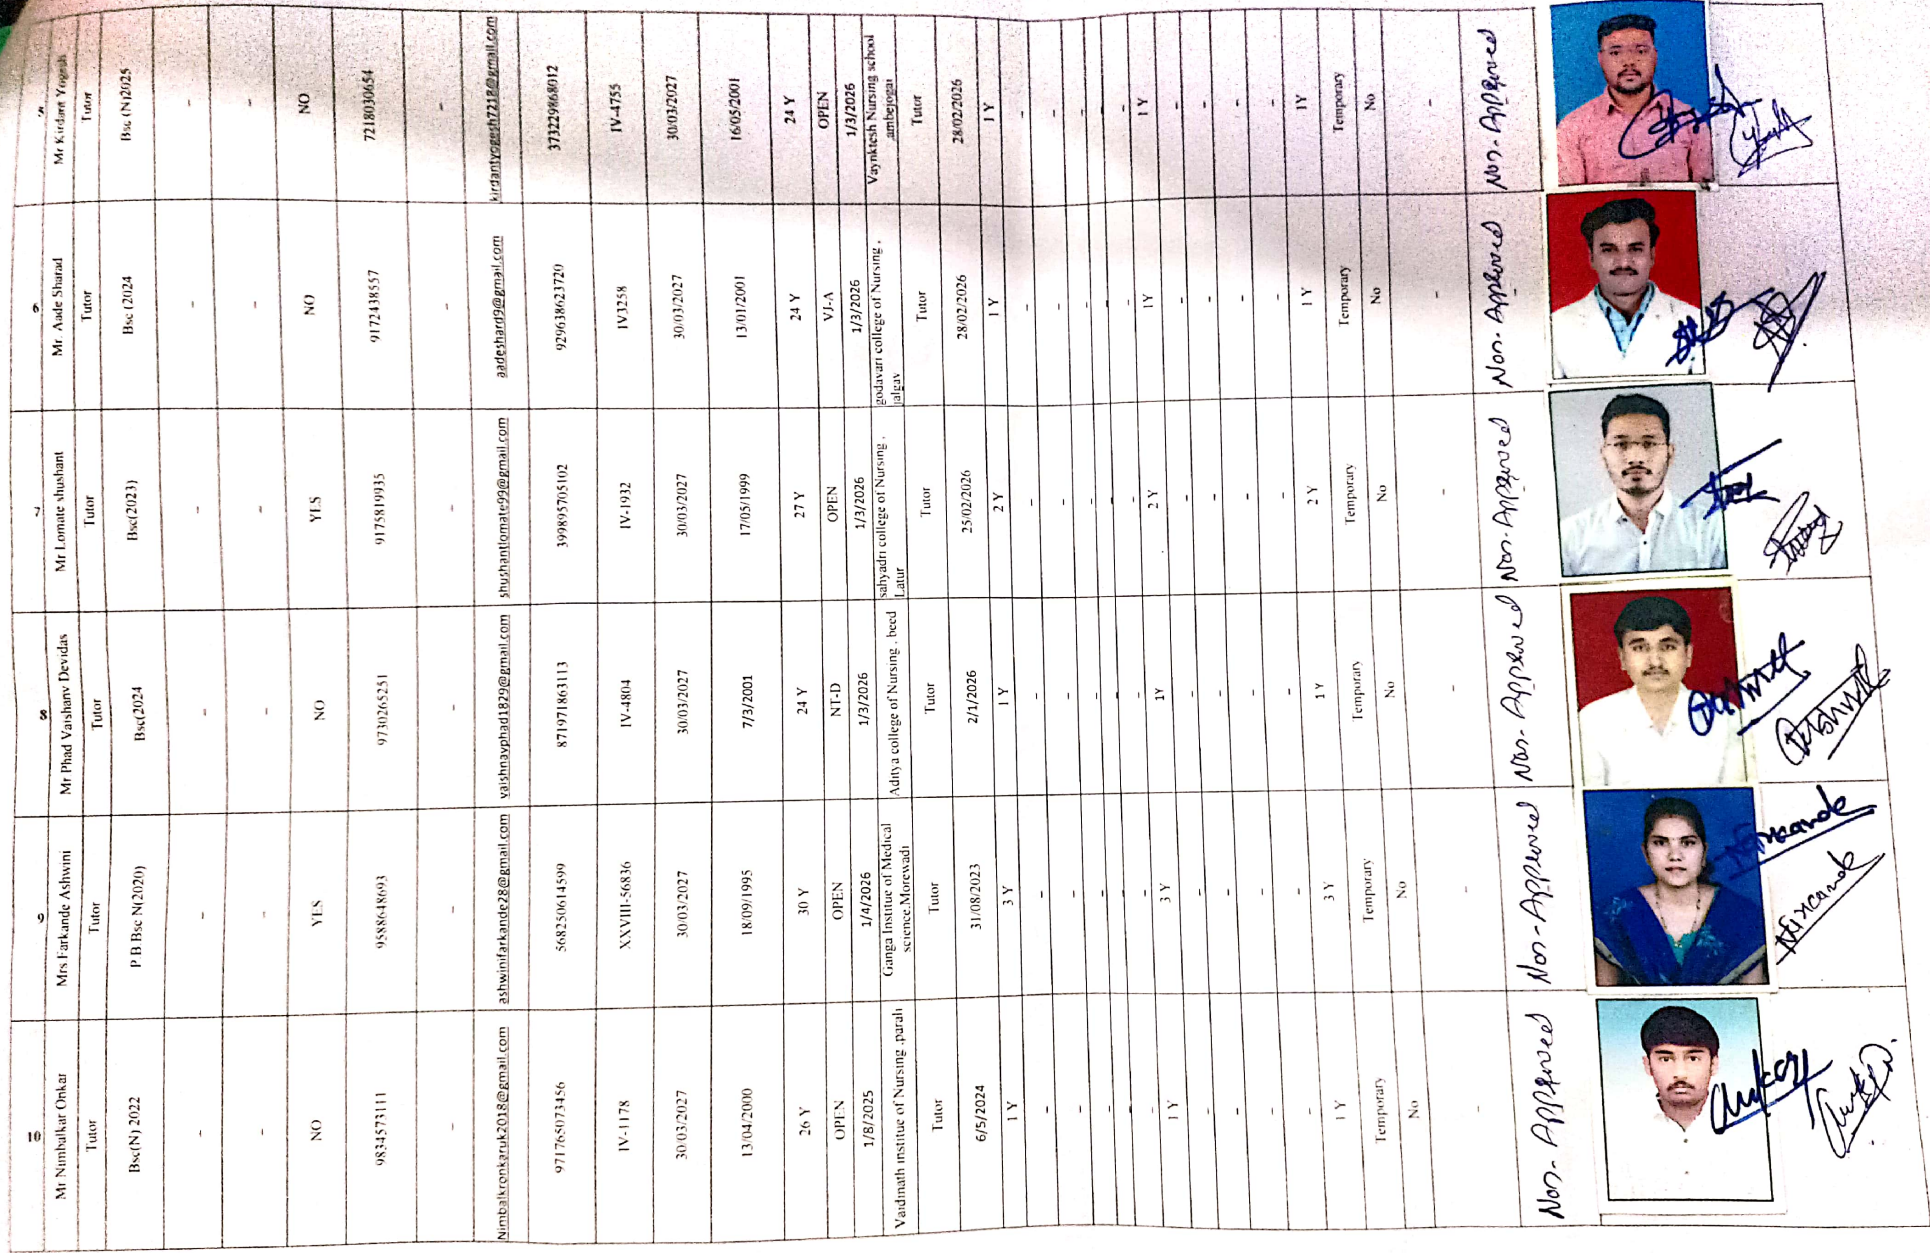 5 6 7 8 9 10
Mr Kirdant Yogesh Mr. Aade Sharad Mr Lomate shushant Mr Phad Vaishanv Devidas Mrs Farkande Ashwini Mr Nimbalkar Onkar
Tutor Tutor Tutor Tutor Tutor Tutor
Bsc (N)2025 Bsc (2024 Bsc(2023) Bsc(2024 P B Bsc N(2020) Bsc(N) 2022
- - - - - -
- - - - - -
NO NO YES NO YES NO
7218030654 9172438557 9175819935 9730265251 9588648693 9834573111
- - - - - -
kirdantyogesh7218@gmail.com aadeshard9@gmail.com shushantlomate99@gmail.com vaishnavphad1829@gmail.com ashwinifarkande28@gmail.com Nimbalkronkaruk2018@gmail.com
373229868012 929638623720 399895705102 871971863113 568250614599 971765073456
IV-4755 IV3258 IV-1932 IV-4804 XXVIII-56836 IV-1178
30/03/2027 30/03/2027 30/03/2027 30/03/2027 30/03/2027 30/03/2027
16/05/2001 13/01/2001 17/05/1999 7/3/2001 18/09/1995 13/04/2000
24 Y 24 Y 27 Y 24 Y 30 Y 26 Y
OPEN VJ-A OPEN NT-D OPEN OPEN
1/3/2026 1/3/2026 1/3/2026 1/3/2026 1/4/2026 1/8/2025
Vaynktesh Nursing school ,ambejogai godavari college of Nursing , jalgav sahyadri college of Nursing , Latur Aditya college of Nursing , beed Ganga Institue of Medical science,Morewadi Vaidinath institue of Nursing ,parali
Tutor Tutor Tutor Tutor Tutor Tutor
28/02/2026 28/02/2026 25/02/2026 2/1/2026 31/08/2023 6/5/2024
1 Y 1 Y 2 Y 1 Y 3 Y 1 Y
- - - - - -
- - - - - -
- - - - - -
- - - - - -
1 Y 1Y 2 Y 1Y 3 Y 1 Y
- - - - - -
- - - - - -
- - - - - -
- - - - - -
1Y 1 Y 2 Y 1 Y 3 Y 1 Y
Temporary Temporary Temporary Temporary Temporary Temporary
No No No No No No
- - - - - -
Non-Approved Non-Approved Non-Approved Non-Approved Non-Approved Non-Approved